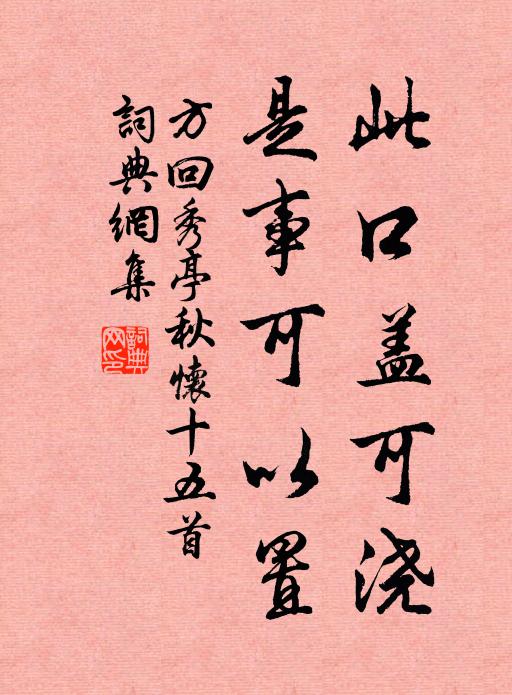 此口盖可浇
是事可以置
方回秀亭秋懷十五首
詞典網集
詞典網印